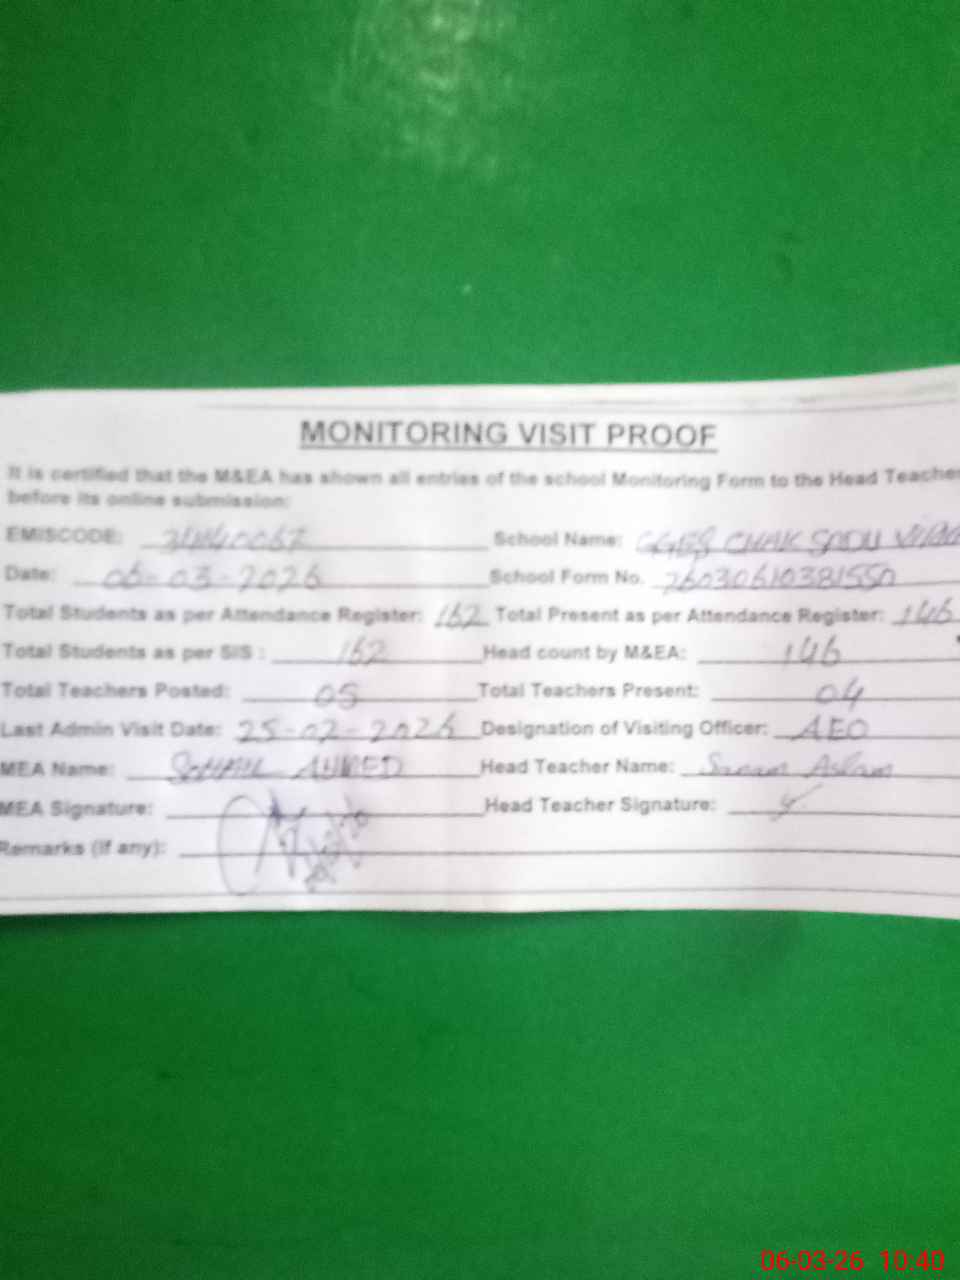 MONITORING VISIT PROOF
It is certified that the M&EA has shown all entries of the school Monitoring Form to the Head Teacher
before its online submission:
EMISCODE: School Name: GGES CHAK
Date: 06-03-2026 School Form No.
Total Students as per Attendance Register: 162 Total Present as per Attendance Register: 146
Total Students as per SIS : 162 Head count by M&EA: 146
Total Teachers Posted: 05 Total Teachers Present: 04
Last Admin Visit Date: 25-02-2026 Designation of Visiting Officer: AEO
MEA Name: AHMED Head Teacher Name: Sanam Aslam
MEA Signature: Head Teacher Signature:
Remarks (if any):
06-03-26 10:40